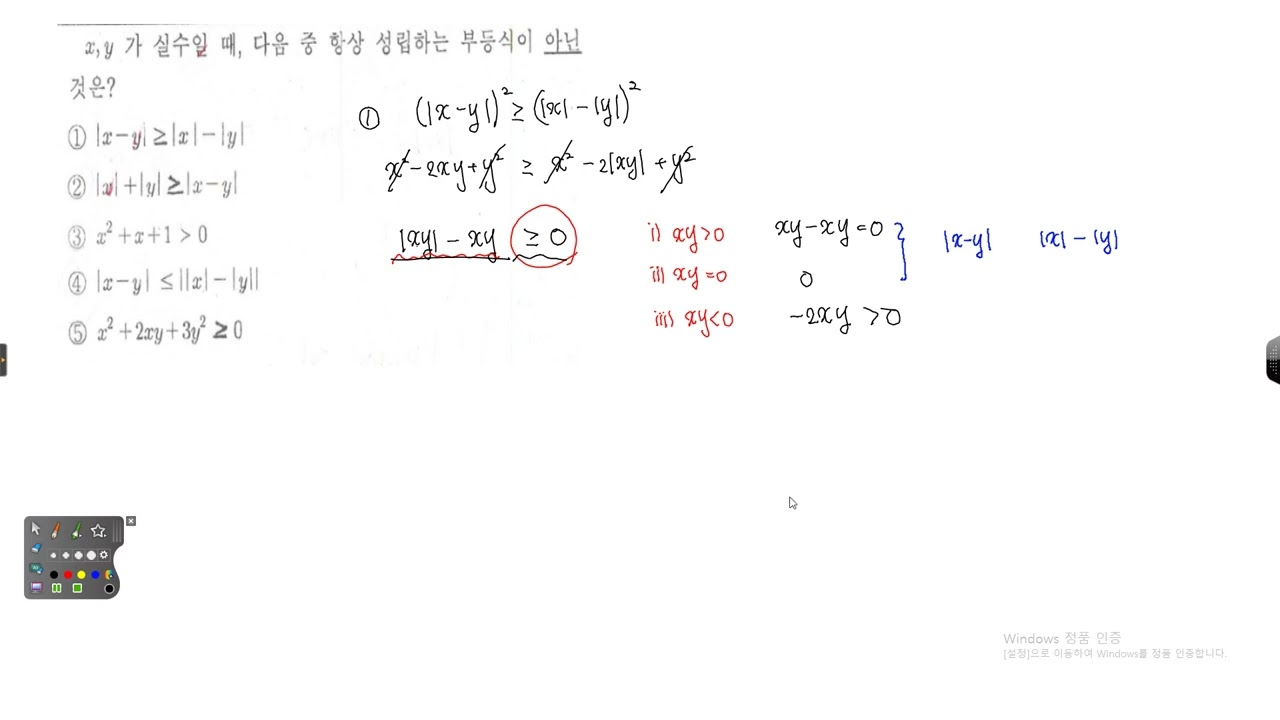 x, y 가 실수일 때, 다음 중 항상 성립하는 부등식이 아닌
것은?
① |x-y| ≥ |x|-|y|
② |x|+|y| ≥ |x-y|
③ x²+x+1 > 0
④ |x-y| ≤ ||x|-|y||
⑤ x²+2xy+3y² ≥ 0
① (|x-y|)² ≥ (|x|-|y|)²
x²-2xy+y² ≥ x²-2|xy|+y²
|xy|-xy ≥ 0
i) xy>0 xy-xy=0
ii) xy=0 0
iii) xy<0 -2xy >0
|x-y| |x|-|y|
Windows 정품 인증
[설정]으로 이동하여 Windows를 정품 인증합니다.